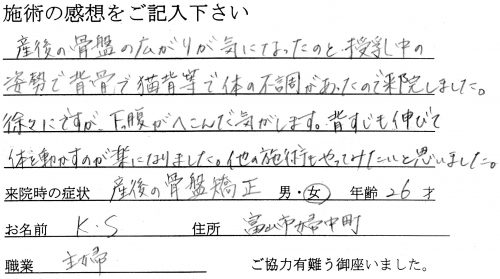 施術の感想をご記入下さい
産後の骨盤の広がりが気になったのと授乳中の
姿勢で背骨で猫背等で体の不調があったので来院しました。
徐々にですが、下っ腹がへこんだ気がします。背すじも伸びて
体を動かすのが楽になりました。他の施術もやってみたいと思いました。
来院時の症状 産後の骨盤矯正 男・女 年齢 26 才
お名前 K.S 住所 富山市婦中町
職業 主婦 ご協力有難う御座いました。